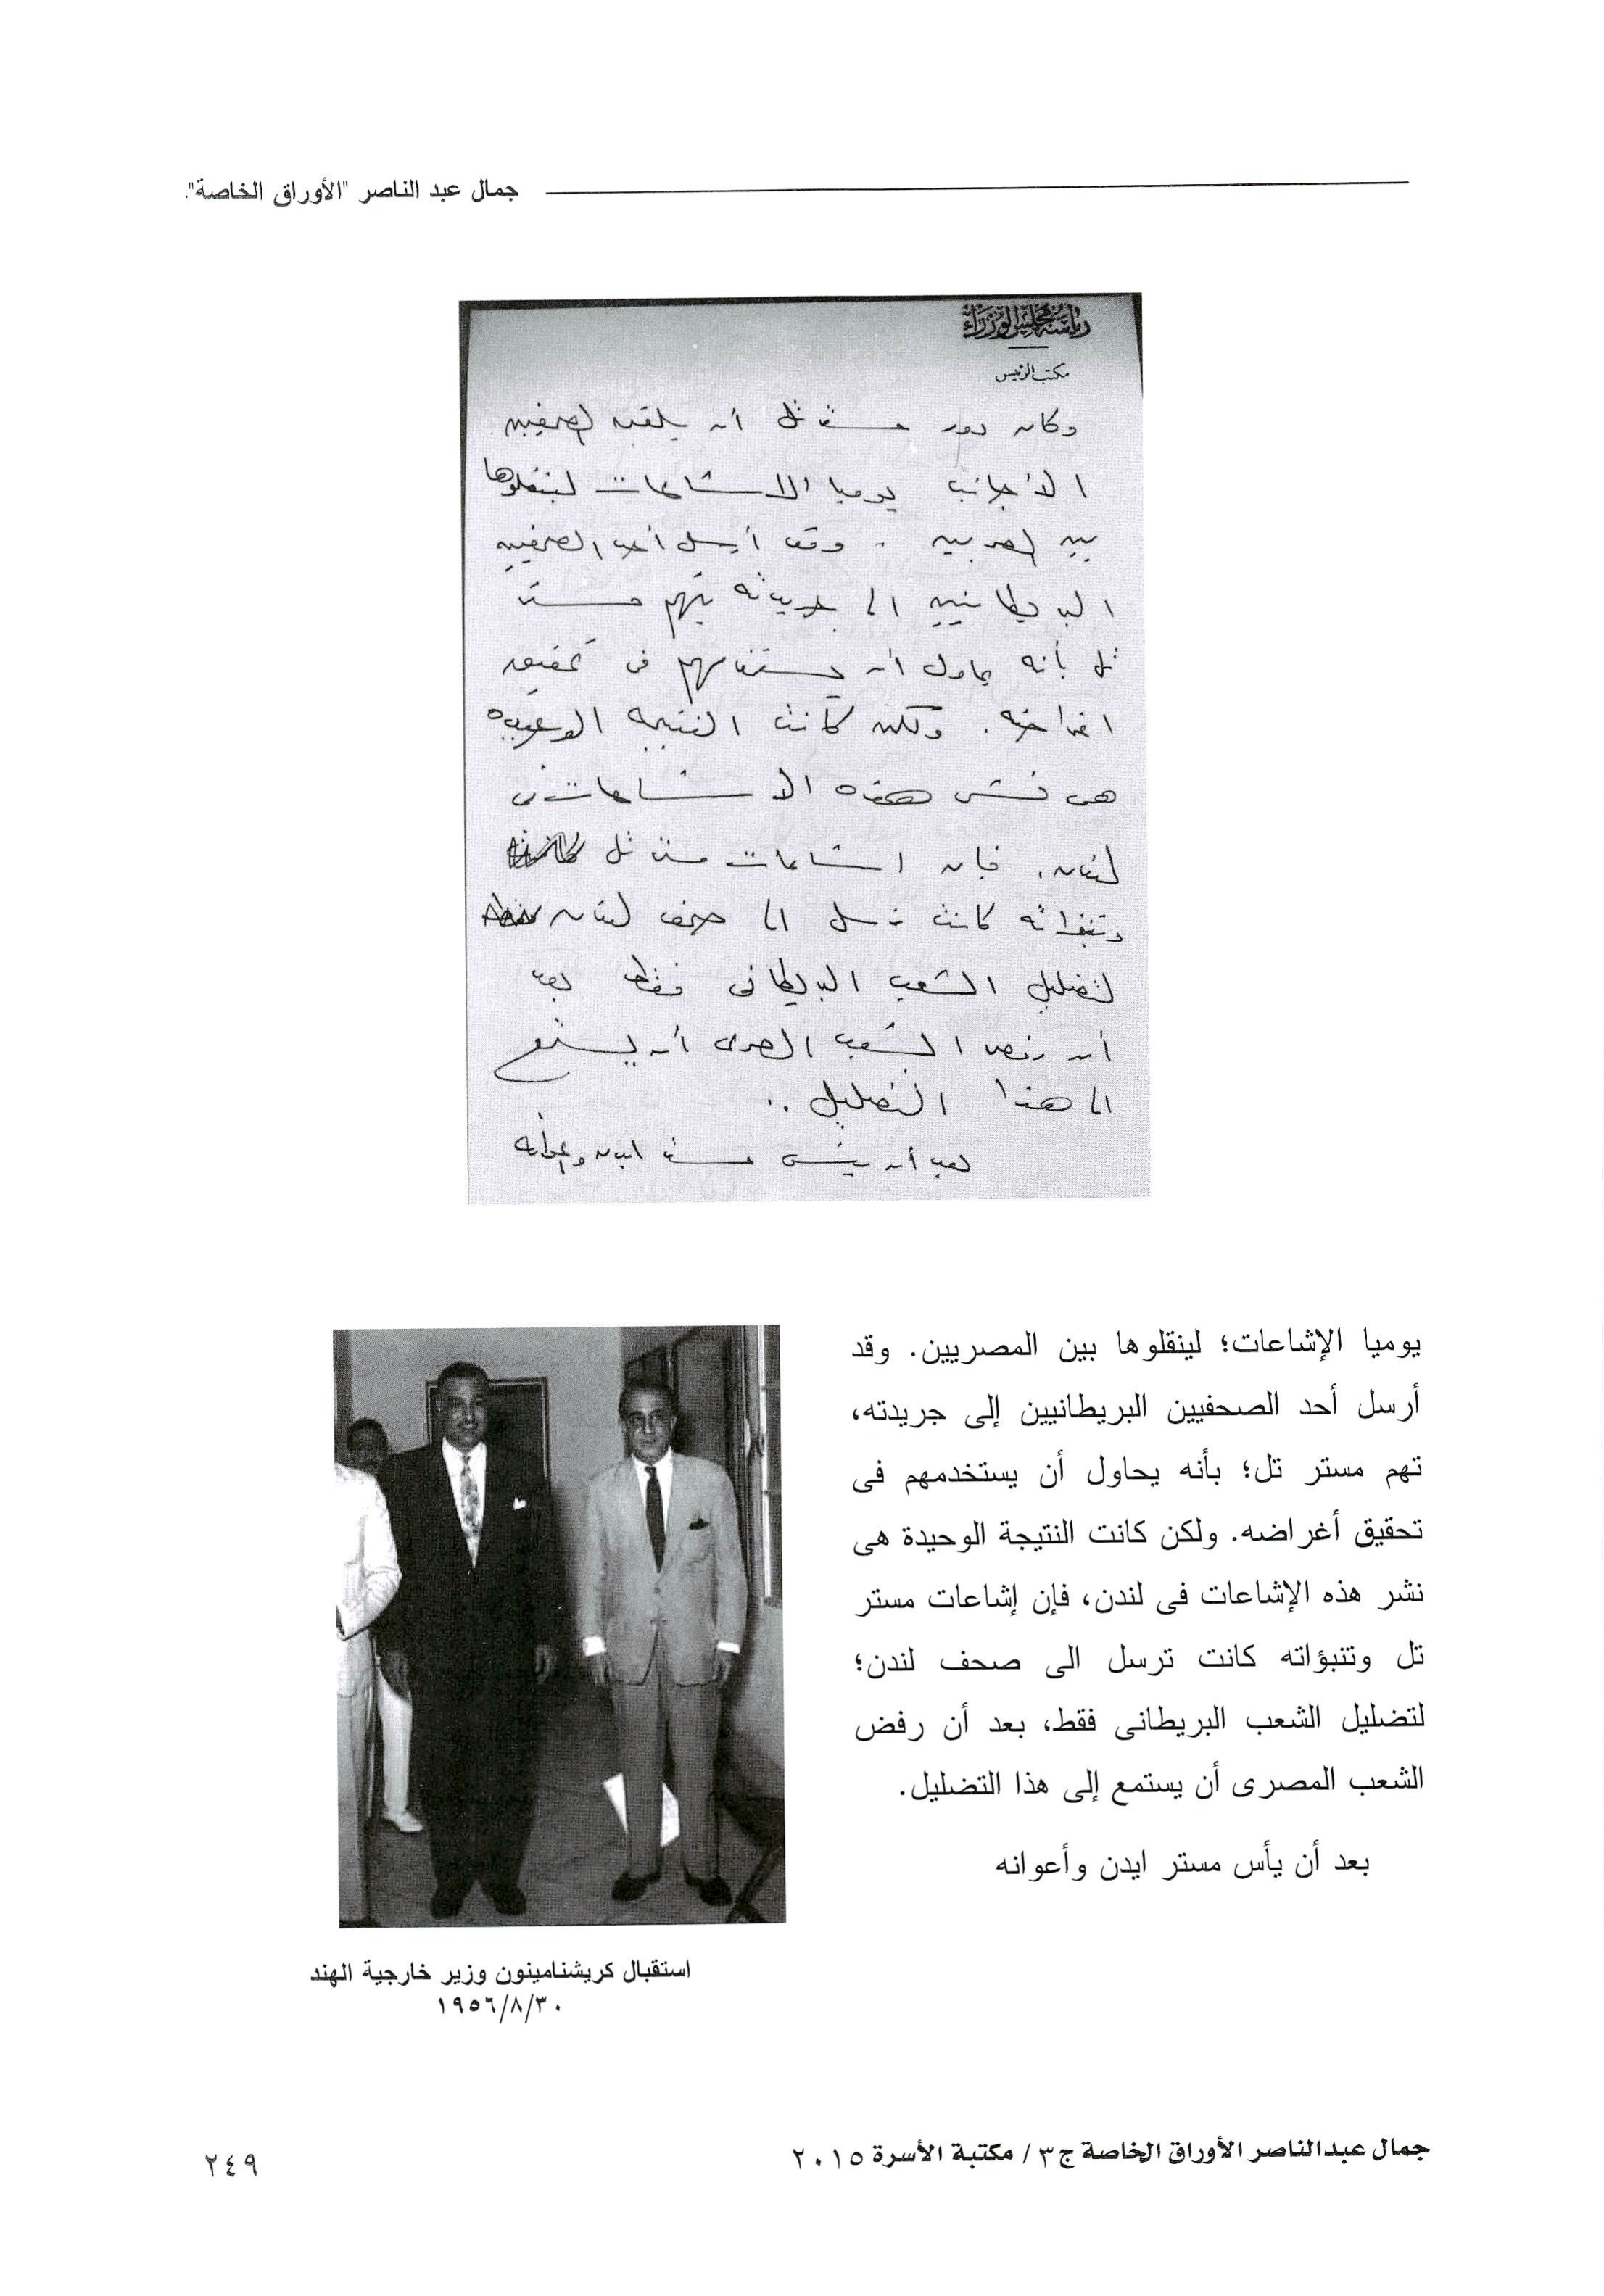 جمال عبد الناصر "الأوراق الخاصة".
رئاسة مجلس الوزراء
مكتب الرئيس
وكان دور مستر تل أن يلقن الصحفيين
الأجانب يوميا الاشاعات لينقلوها
بين المصريين . وقد أرسل أحد الصحفيين
البريطانيين الى جريدته يتهم مستر
تل بأنه يحاول أن يستخدمهم فى تحقيق
اغراضه . ولكن كانت النتيجه الوحيده
هى نشر هذه الاشاعات فى
لندن . فإن اشاعات مستر تل
وتنبؤاته كانت ترسل الى صحف لندن
لتضليل الشعب البريطانى فقط بعد
أن رفض الشعب المصرى أن يستمع
الى هذا التضليل ..
بعد أن يئس مستر ايدن وأعوانه
يوميا الإشاعات؛ لينقلوها بين المصريين. وقد
أرسل أحد الصحفيين البريطانيين إلى جريدته،
تهم مستر تل؛ بأنه يحاول أن يستخدمهم فى
تحقيق أغراضه. ولكن كانت النتيجة الوحيدة هى
نشر هذه الإشاعات فى لندن، فإن إشاعات مستر
تل وتنبؤاته كانت ترسل الى صحف لندن؛
لتضليل الشعب البريطانى فقط، بعد أن رفض
الشعب المصرى أن يستمع إلى هذا التضليل.
بعد أن يأس مستر ايدن وأعوانه
استقبال كريشنامينون وزير خارجية الهند
١٩٥٦/٨/٣٠
جمال عبدالناصر الأوراق الخاصة ج ٣ / مكتبة الأسرة ٢٠١٥
٢٤٩